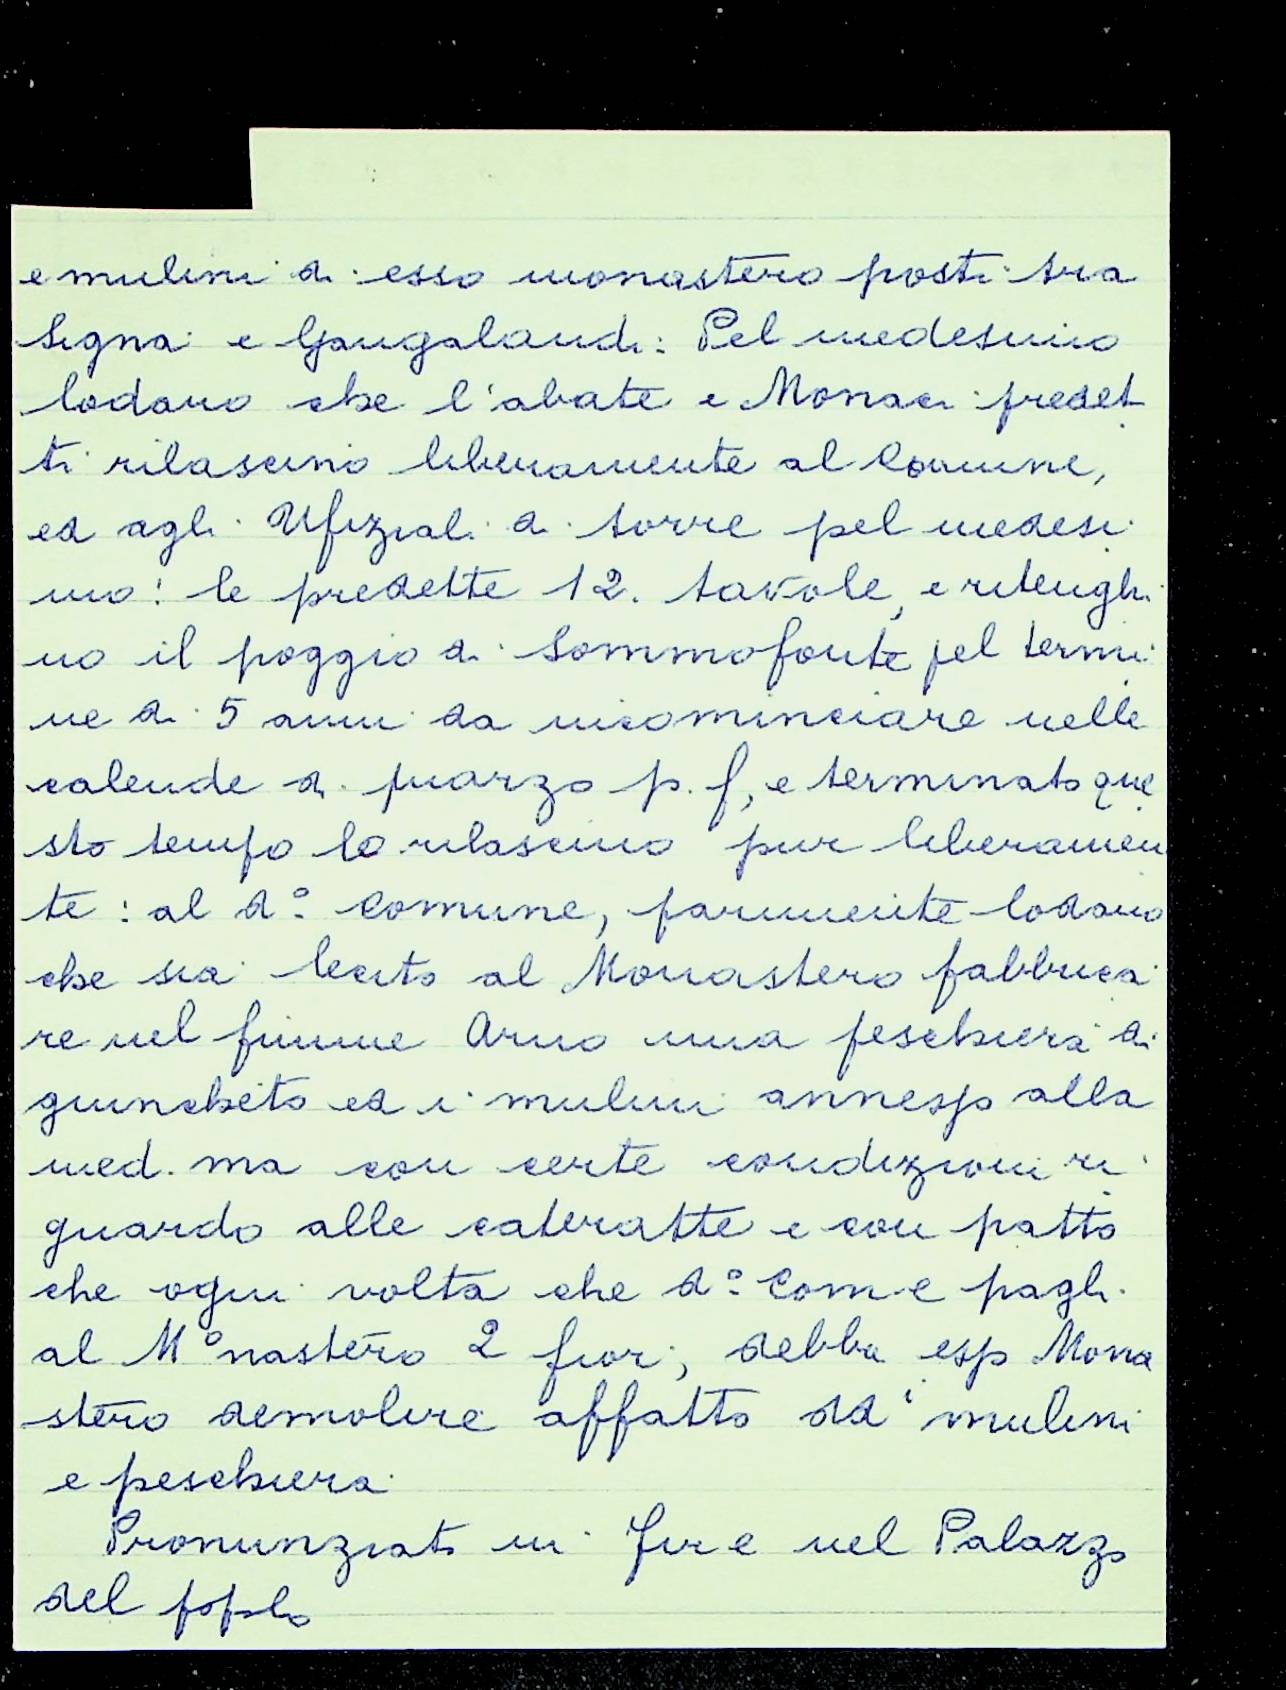 e mulini di esso monastero posti tra
Signa e Gangalandi: Pel medesimo
lodano che l'abate e Monaci predet
ti rilascino liberamente al Comune,
ed agli Ufiziali di torre pel medesi
mo: le predette 12. tavole, e ritenghi
no il poggio di Sommofonte pel termi
ne di 5 anni da incominciare nelle
calende di marzo p. f, e terminato que
sto tempo lo rilascino pur liberamen
te: al d.° Comune, parimente lodano
che sia lecito al Monastero fabbrica
re nel fiume Arno una peschiera di
giuncheto ed i mulini annessi alla
med. ma con certe condizioni ri
guardo alle cateratte e con patto
che ogni volta che d.° Com.e paghi
al M°nastero 2 fior:, debba esso Mona
stero demolire affatto dd.i mulini
e peschiera
Pronunziato in Fire nel Palazzo
del popolo